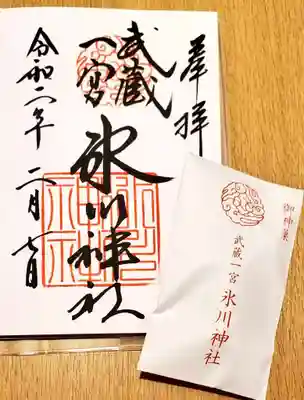 奉拝
武蔵
一宮
氷川神社
令和二年 二月 七日
御神菓
武蔵一宮
氷川神社